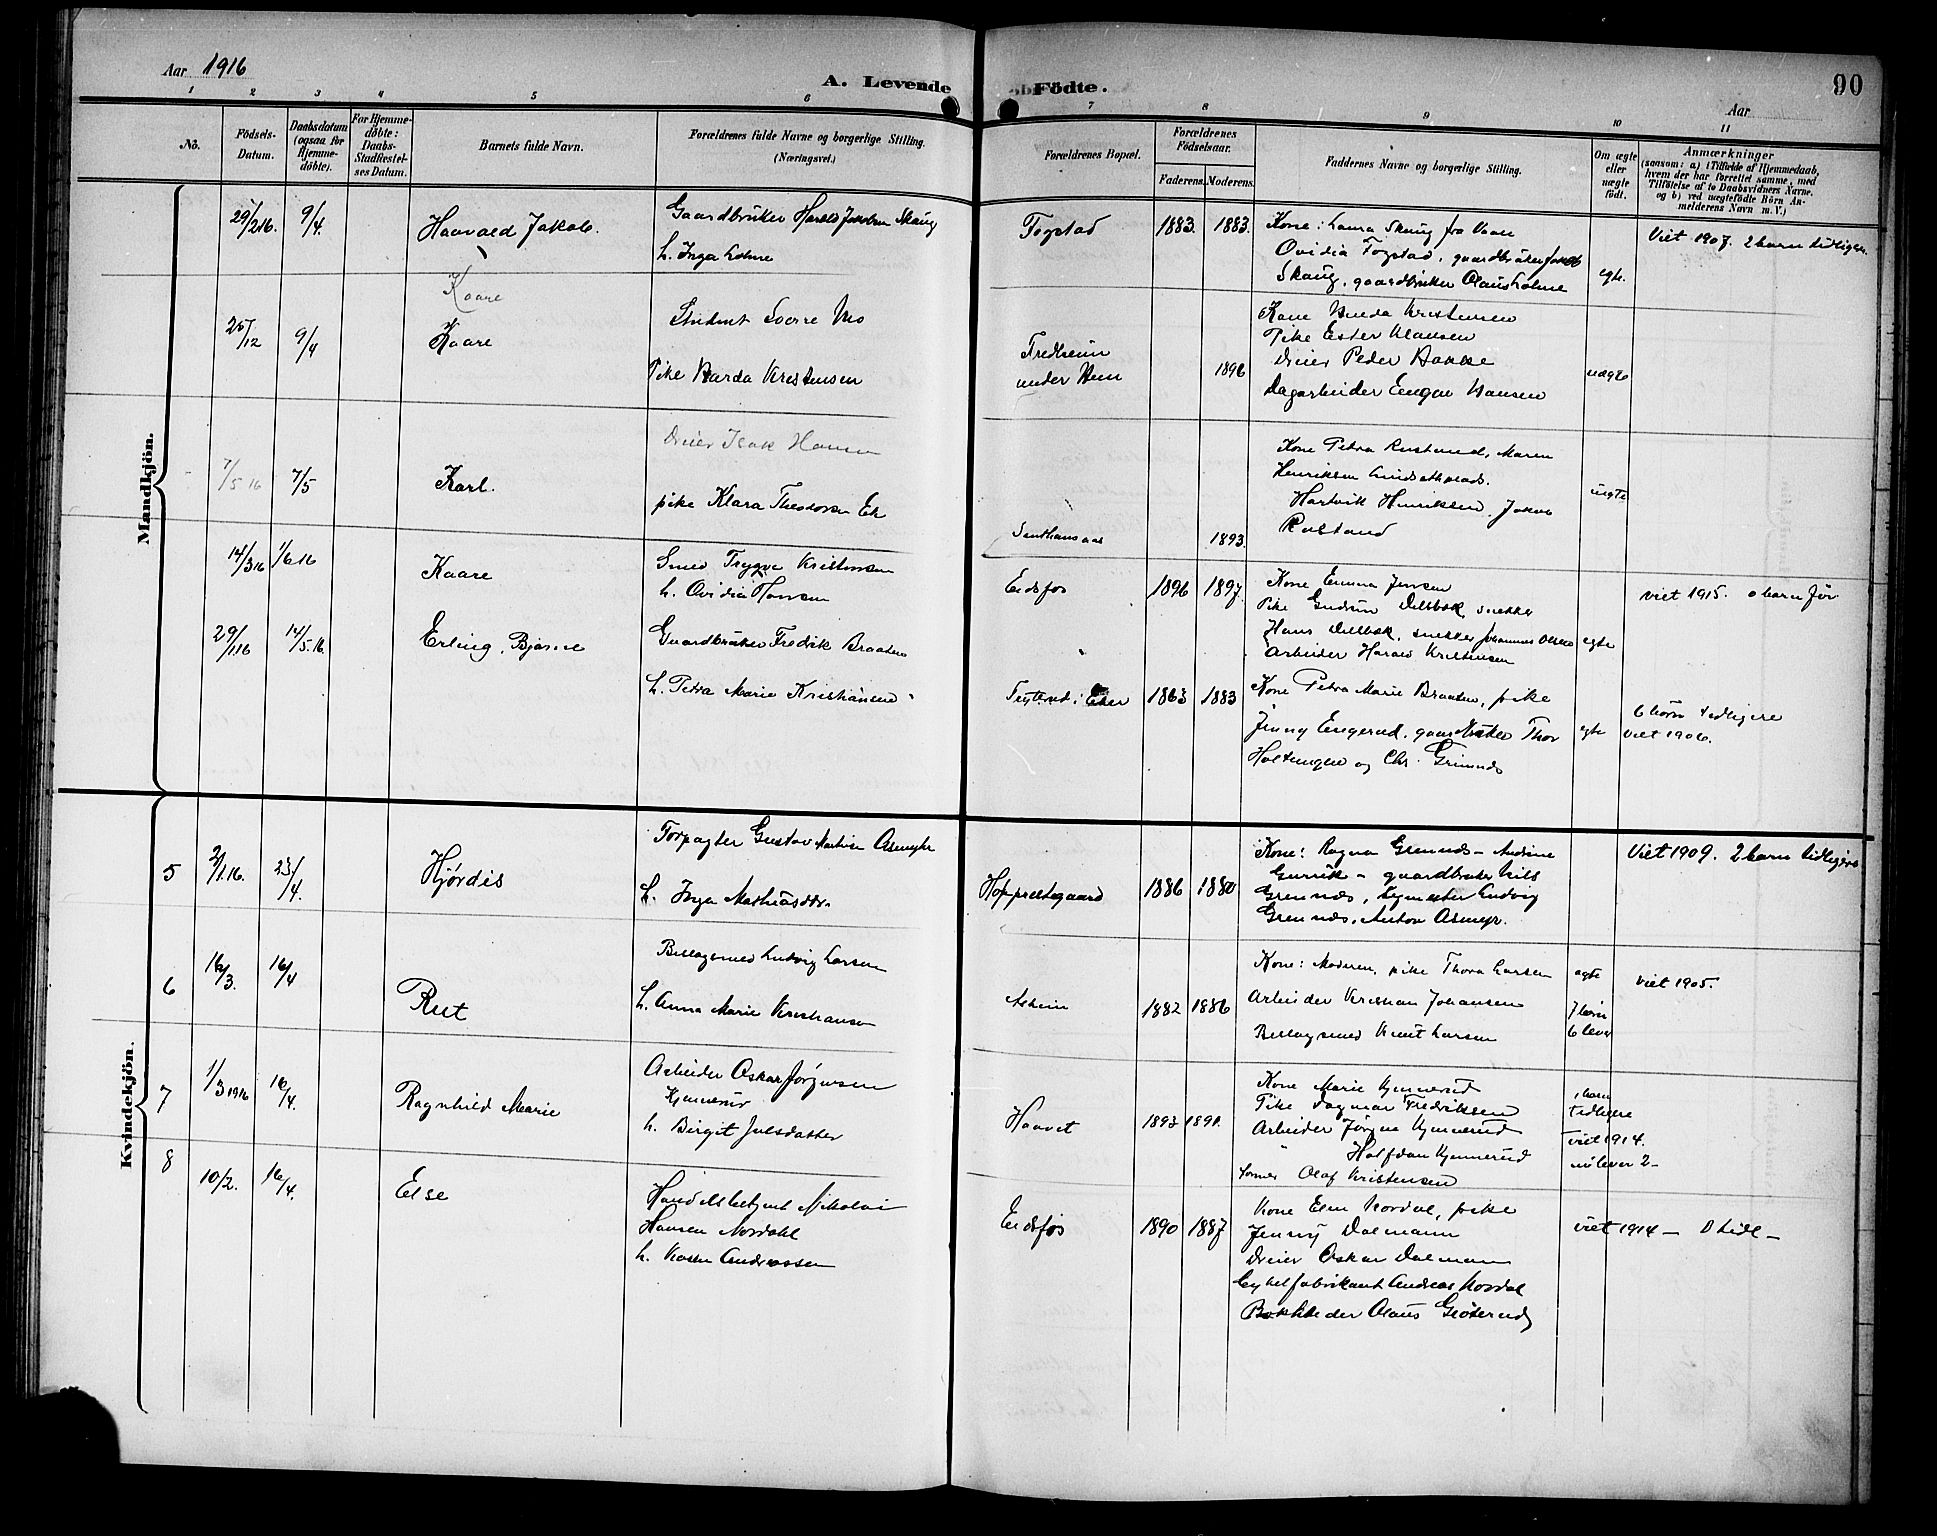 Aar 1916
A. Levende
Födte.
90
Aar
1 2 3 4 5 6 7 8 9 10 11
No.
Födsels-
Datum.
Daabsdatum
(ogsaa for
Hjemme-
døbte).
For Hjemme-
døbte:
Daabs-
Stadfæstel-
ses Datum.
Barnets fulde Navn.
Forældrenes fulde Navne og borgerlige Stilling.
(Næringsvei.)
Forældrenes Bopæl.
Forældrenes
Födselsaar.
Faderens. Moderens.
Faddernes Navne og borgerlige Stilling.
Om ægte
eller
uægte
födt.
Anmærkninger
(saasom: a) i Tilfælde af Hjemmedaab,
hvem der har forrettet samme, med
Tilföielse af to Daabsvidners Navne,
og b) ved uægtefödte Börn An-
melderens Navn m. V.)
Mandkjön.
29/2 16. 9/4. Haavald Jakob.
Gaardbruker Harald Jakobsen Skaug
h. Inga Holme
Fogstad 1883. 1883.
Kone: Laura Skaug fra
Ovidia Fogstad, gaardbruker Jakob
Skaug, gaardbruker Olaus Holme
egte.
Viet 1907. 2 barn tidligere.
Kaare
25/12 9/4 Kaare
Student Sverre Mo
Pike Kristensen
Fredheim
under Hem
1896
Kone Kristensen
Pike Ester Klausen
Dreier Peder Bakke
Dagarbeider Hansen
uægte
7/5 16 7/5 Karl.
Dreier Isak Hansen
pike Klara Theodorsen Ek
Sankthansaas 1893.
Kone Petra Rustand, Maren
Henriksen
Hartvik Henriksen, Jakob
Rustand
uegte
14/3 16 1/6 16 Kaare
Smed Trygve Kristensen
h. Ovidia Hansen
Eidsfos 1896 1897.
Kone Emma Jensen
Pike Gudrun Delbæk, snekker
Hans Delbæk, snekker Johannes Olsen
Arbeider Harald Kristensen
egte
viet 1915. 0 barn før
29/1 16 14/5. 16. Erling, Bjarne
Gaardbruker Fredrik Braaten
h. Petra Marie Kristiansen
i Eker 1863 1883
Kone Petra Marie Braaten, pike
Jenny Engerud, gaardbruker Thor
Holtungen og Chr. Grimnds
egte
6 børn tidligere
viet 1906.
Kvindekjön.
5 2/1. 16. 23/4. Hjørdis
Forpagter Gustav Martin Asmyhr
h. Inga Mathiasdtr.
Hof prestegaard 1886 1880
Kone: Ragna Grennds – Andrine
gaardbruker Nils
Grennds, Ludvig
Grennds, Anton Asmyr.
Viet 1909. 2 barn tidligere
6 16/3. 16/4 Rut
Beslagsmed Ludvig Larsen
h. Anna Marie Kristiansen
Asheim 1882 1886
Kone: Moderen, pike Thora Larsen
Arbeider Kristian Johansen
Beslagsmed Knut Larsen
egte
7 børn
6 lever
viet 1905.
7 1/3 1916 16/4. Ragnhild Marie
Arbeider Oskar Jørgensen
Hynnerud
h. Birgit Julsdatter
Haavet 1893 1891.
Kone Marie Hynnerud
Pike Dagmar Fredriksen
Arbeider Jørgen Hynnerud
" Halfdan Hynnerud
Olaf Kristensen
1 barn
tidligere
viet 1914.
nu lever 2 –
8 10/2. 16/4. Else
Handelsbetjent Nikolai
Hansen Nordahl
h. Karen Andreassen
Eidsfos 1890 1887
Kone Elen Nordal, pike
Jenny Dalmann
Dreier Oskar Dalmann
Cykelfabrikant Andreas Nordal
Olaus Gløterud
viet 1914 – 0 tidl –